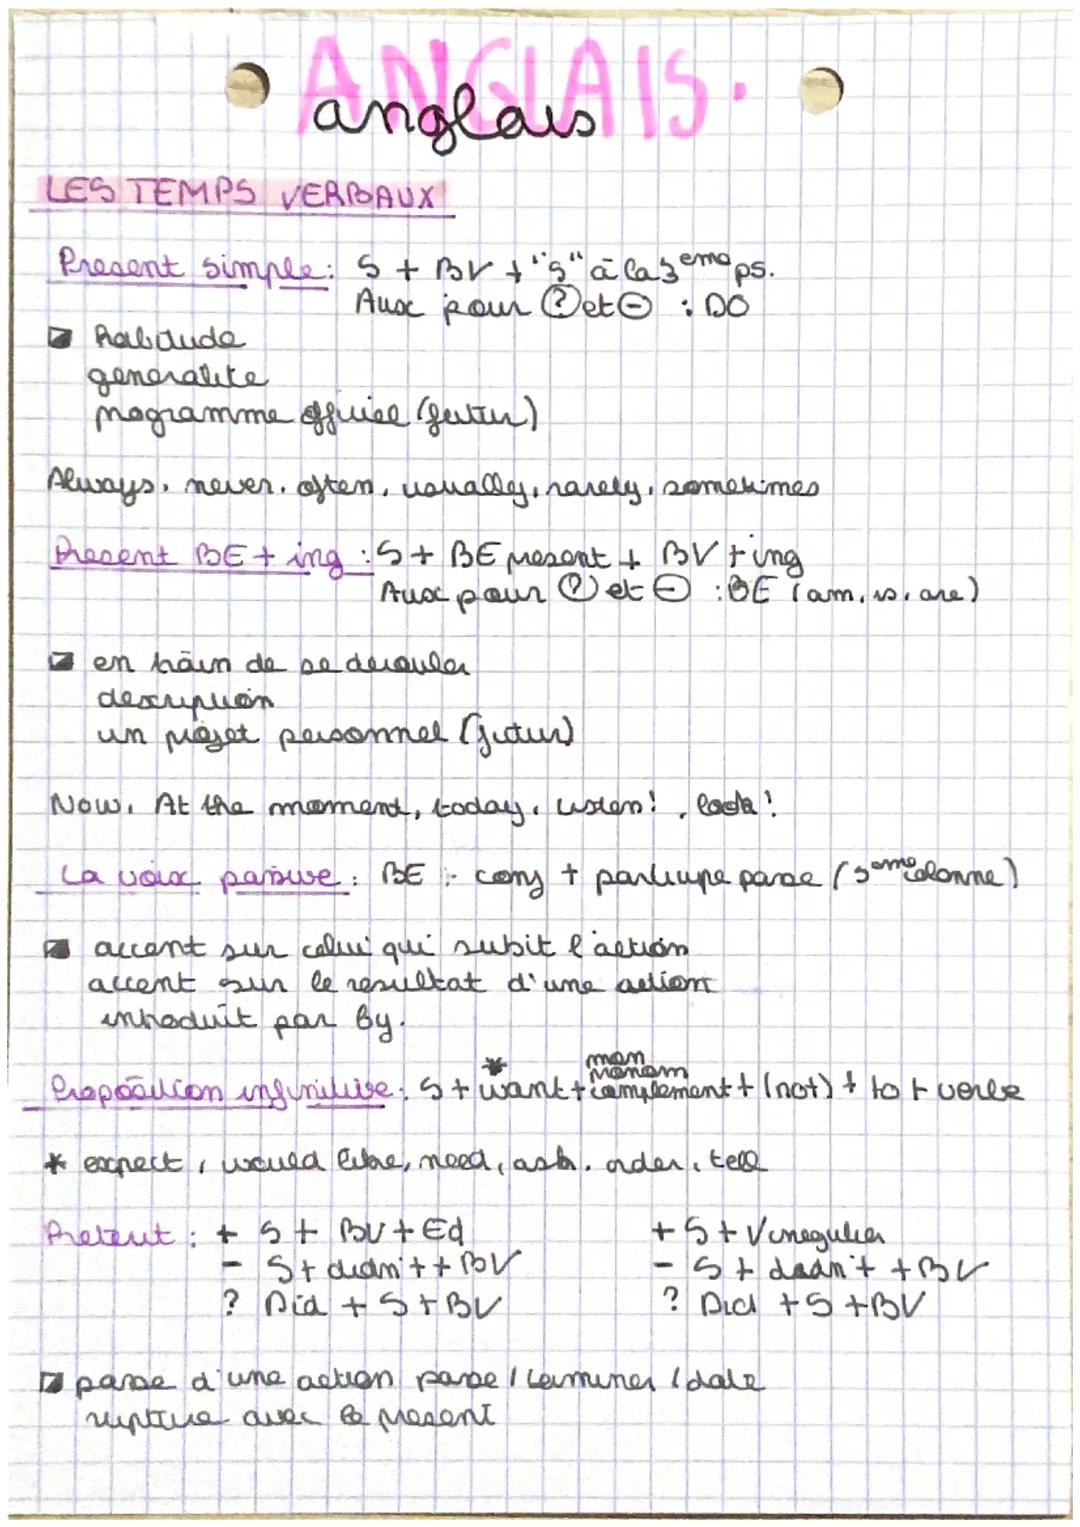 ANGLAIS.
anglais
LES TEMPS VERBAUX
Present simple : S + BV + "s" à la 3eme ps.
Aux pour ? et - : DO
habitude
generalite
programme officiel (futur)
Always, never, often, usually, rarely, sometimes
Present BE + ing : S + BE present + BV + ing
Aux pour ? et - : BE (am, is, are)
en train de se derouler
description
un projet personnel (futur)
Now, At the moment, today, listen!, look!
La voix passive : BE : conj + participe passe (3eme colonne)
accent sur celui qui subit l'action
accent sur le resultat d'une action
introduit par by.
man
Proposition infinitive : S + want* + complement + (not) + to + verbe
* expect, would like, need, ask, order, tell
Preterit : + S + BV + Ed + S + V irregulier
- S + didn't + BV - S + didn't + BV
? Did + S + BV ? Did + S + BV
passe d'une action passe / terminer / date
rupture avec le present